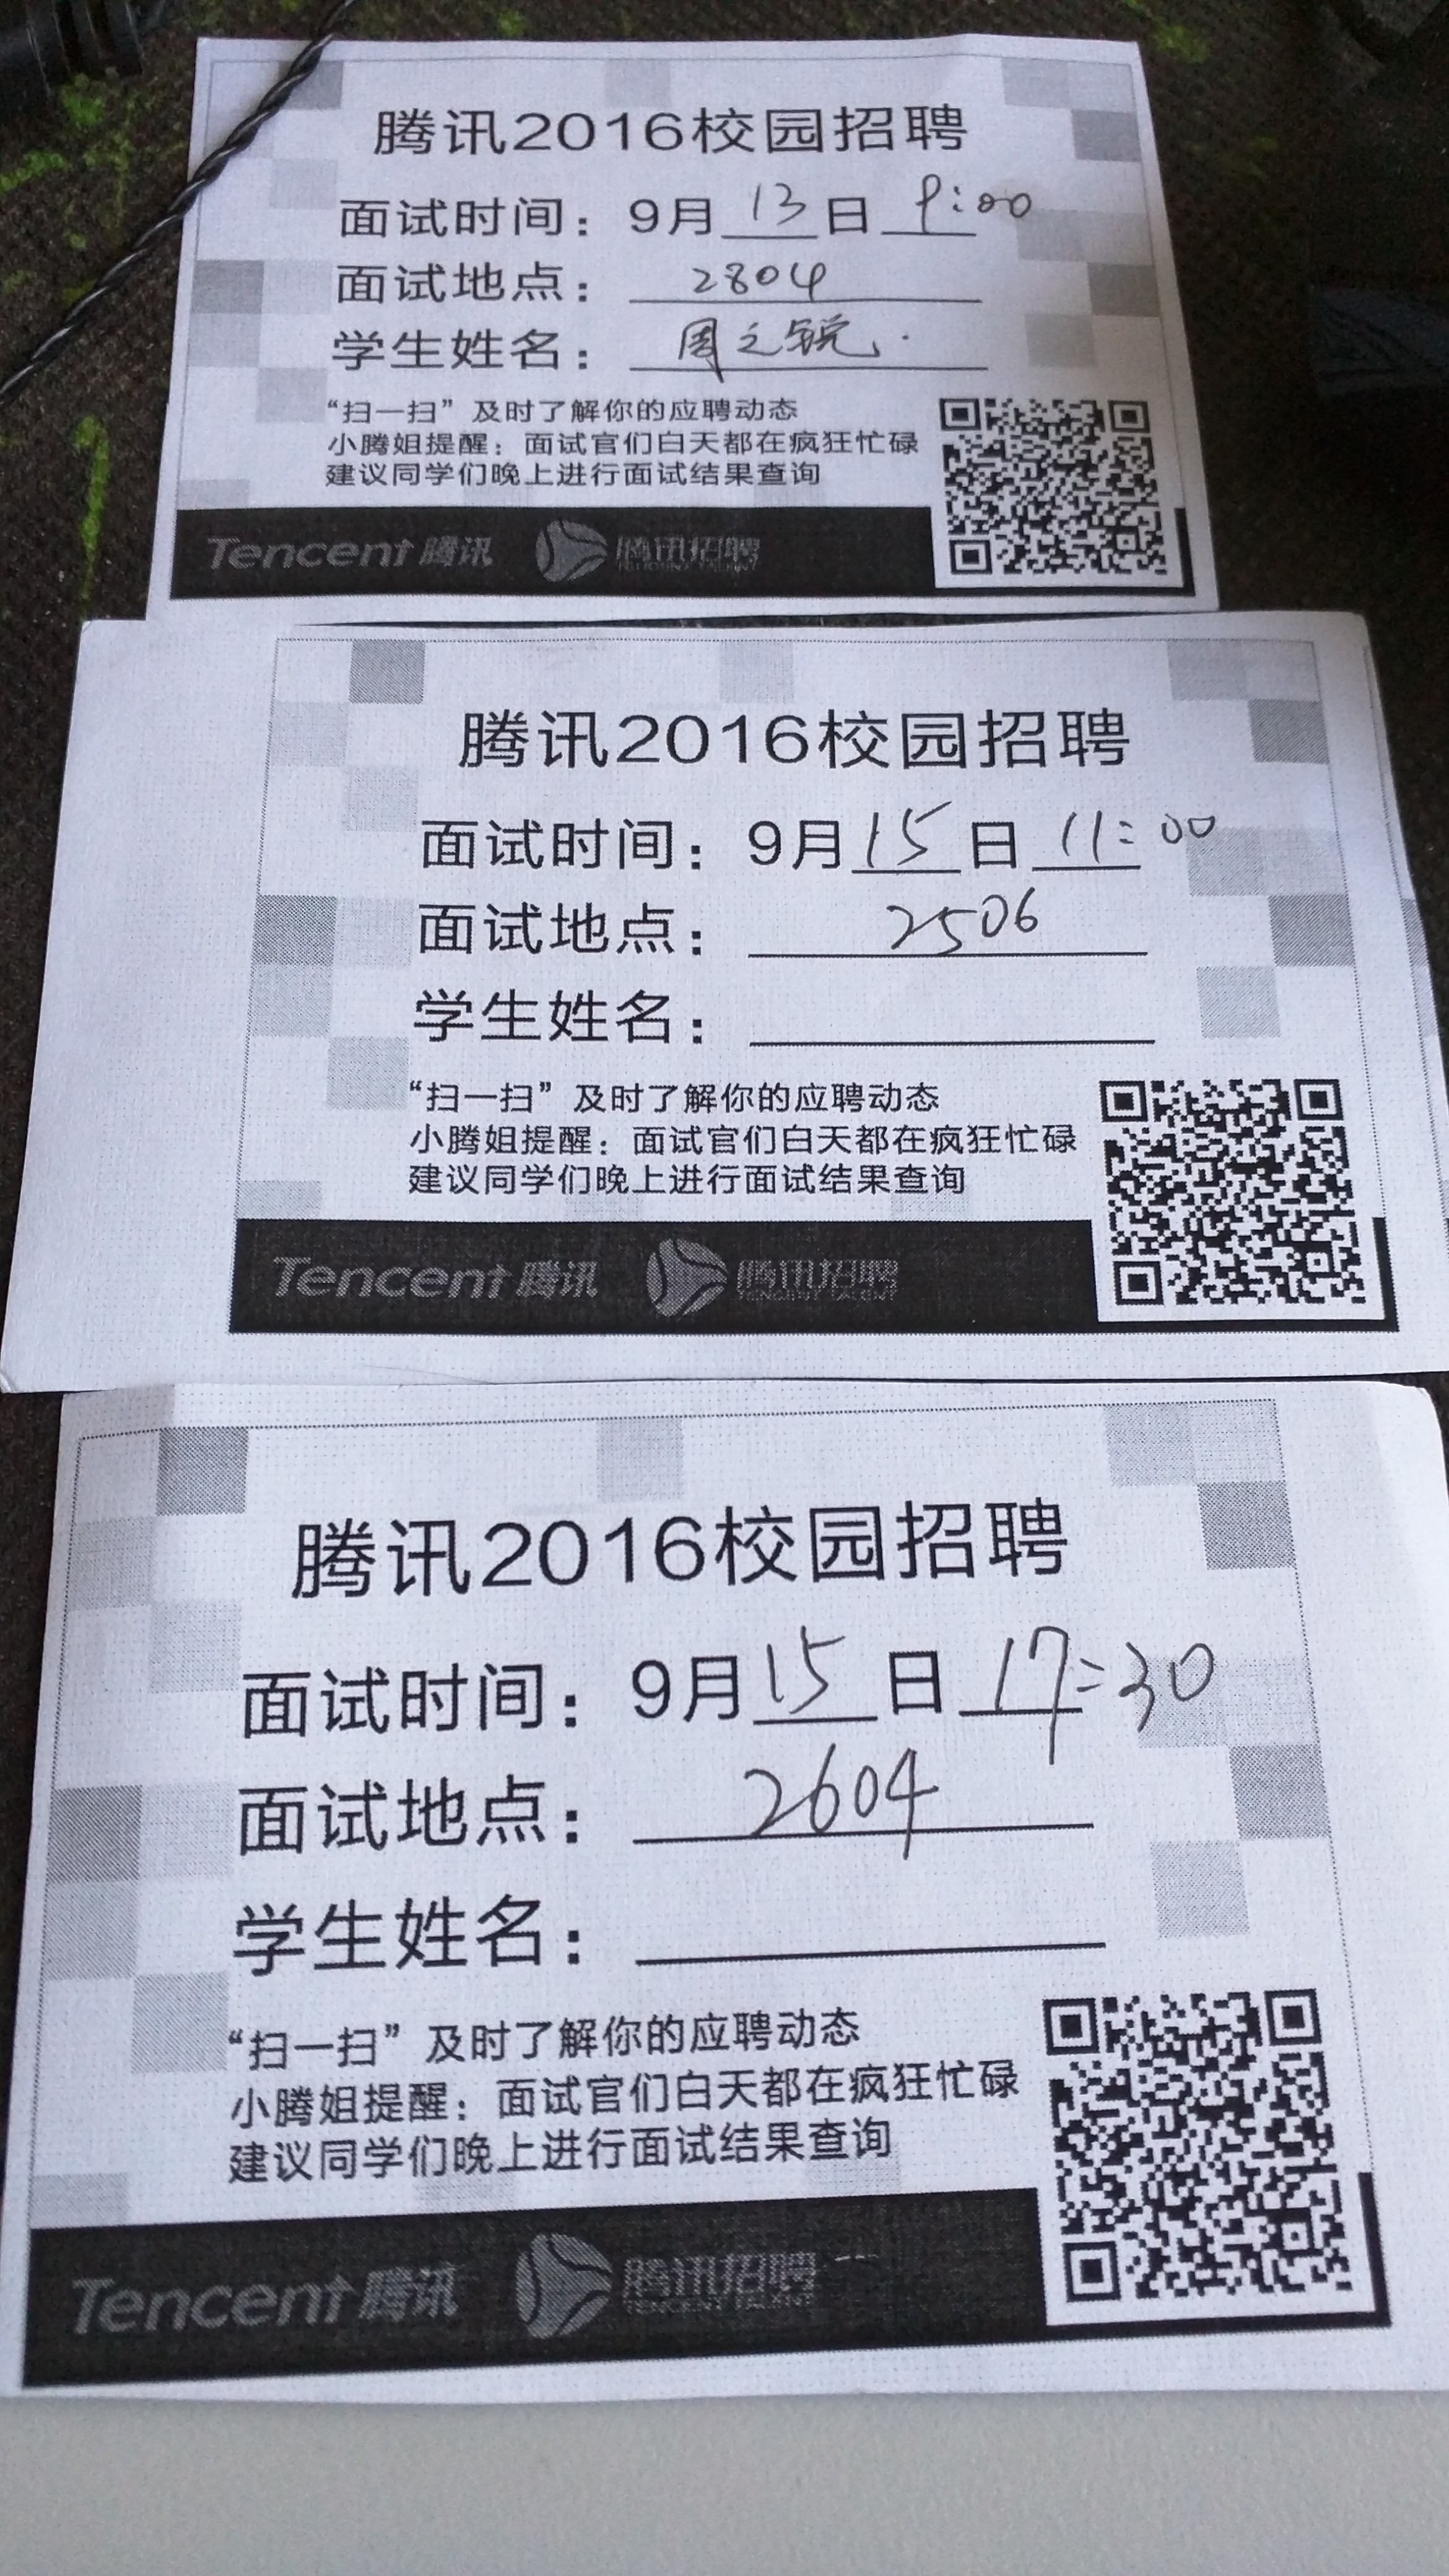 腾讯2016校园招聘
面试时间：9月 13 日 9:00
面试地点： 2804
学生姓名： 周之锐
“扫一扫”及时了解你的应聘动态
小腾姐提醒：面试官们白天都在疯狂忙碌
建议同学们晚上进行面试结果查询
Tencent 腾讯 腾讯招聘
TENCENT TALENT
腾讯2016校园招聘
面试时间：9月 15 日 11:00
面试地点： 2506
学生姓名：
“扫一扫”及时了解你的应聘动态
小腾姐提醒：面试官们白天都在疯狂忙碌
建议同学们晚上进行面试结果查询
Tencent 腾讯 腾讯招聘
TENCENT TALENT
腾讯2016校园招聘
面试时间：9月 15 日 17:30
面试地点： 2604
学生姓名：
“扫一扫”及时了解你的应聘动态
小腾姐提醒：面试官们白天都在疯狂忙碌
建议同学们晚上进行面试结果查询
Tencent 腾讯 腾讯招聘
TENCENT TALENT